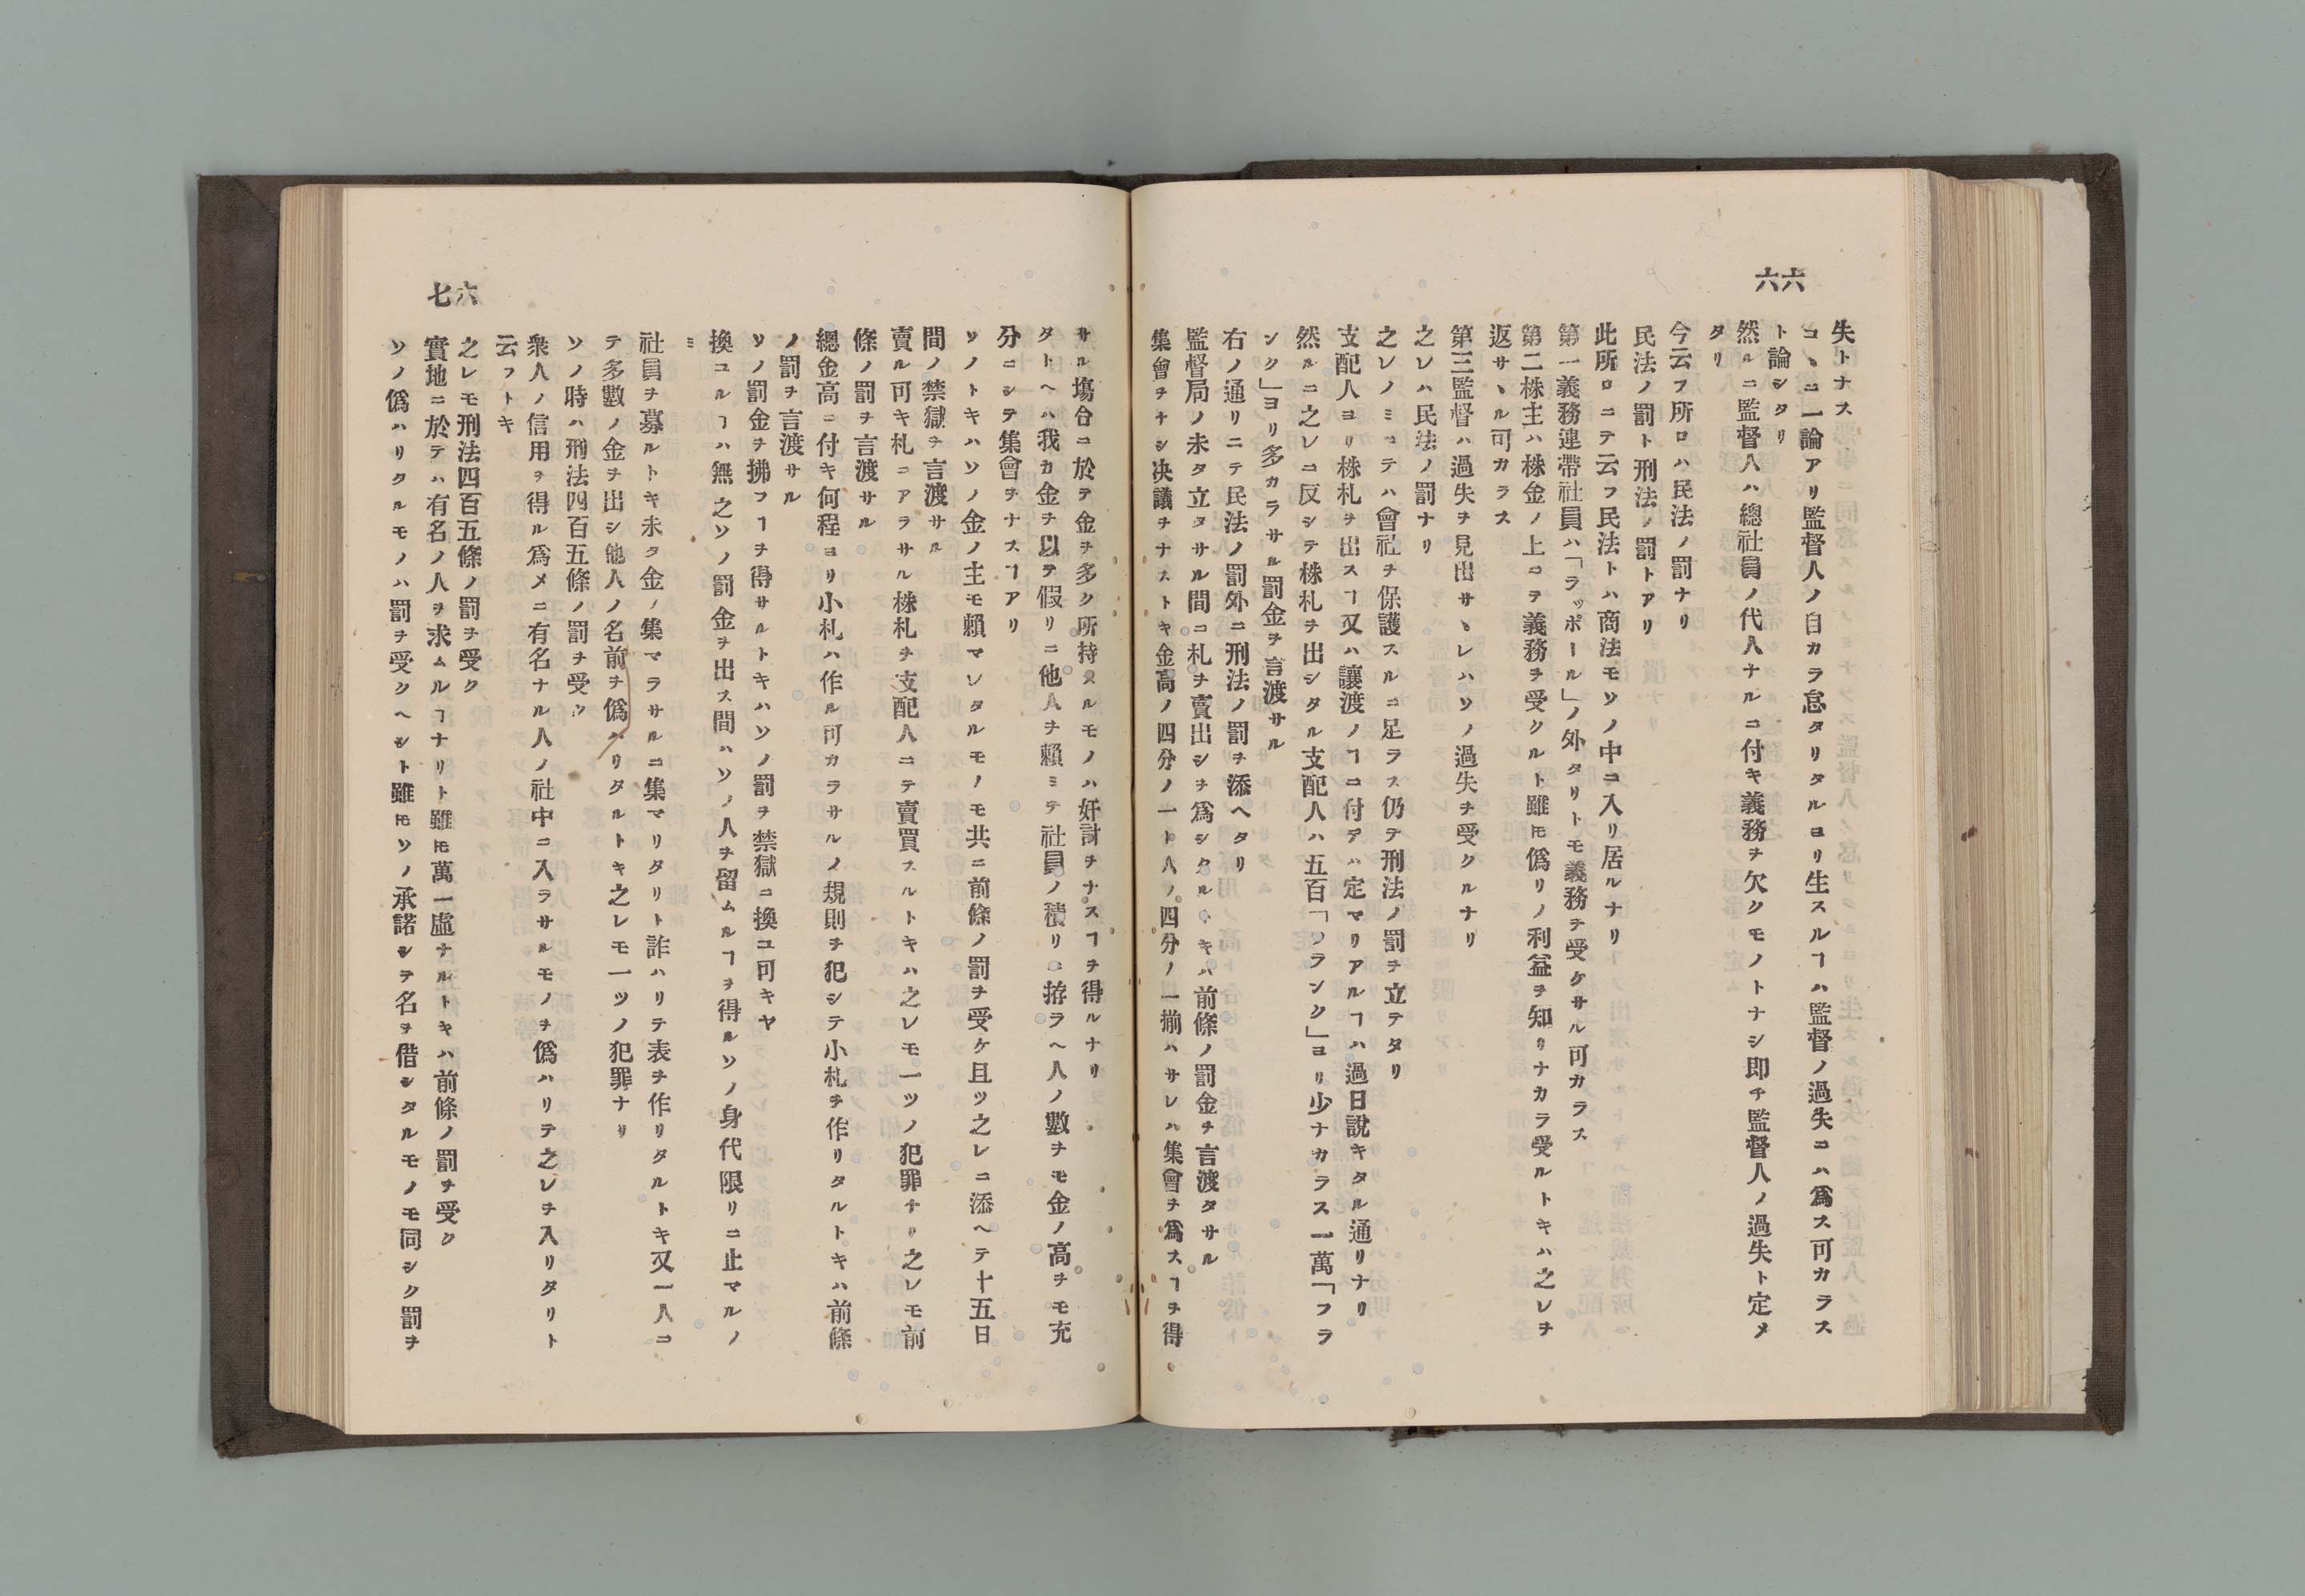 六六
失トナス
コヽニ一論アリ監督人ノ自カラ怠タリタルヨリ生スルヿハ監督ノ過失ニハ爲ス可カラス
ト論シタリ
然ルニ監督人ハ總社員ノ代人ナルニ付キ義務ヲ欠クモノトナシ即チ監督人ノ過失ト定メ
タリ
今云フ所ロハ民法ノ罰ナリ
民法ノ罰ト刑法ノ罰トアリ
此所ロニテ云フ民法トハ商法モソノ中ニ入リ居ルナリ
第一義務連帶社員ハ「ラッポール」ノ外タリトモ義務ヲ受ケサル可カラス
第二株主ハ株金ノ上ニテ義務ヲ受クルト雖𪜈僞リノ利益ヲ知リナカラ受ルトキハ之レヲ
返サヽル可カラス
第三監督ハ過失ヲ見出サヽレハソノ過失ヲ受クルナリ
之レハ民法ノ罰ナリ
之レノミニテハ會社ヲ保護スルニ足ラス仍テ刑法ノ罰ヲ立テタリ
支配人ヨリ株札ヲ出スヿ又ハ讓渡ノヿニ付テハ定マリアルヿハ過日說キタル通リナリ
然ルニ之レニ反シテ株札ヲ出シタル支配人ハ五百「フランク」ヨリ少ナカラス一萬「フラ
ンク」ヨリ多カラサル罰金ヲ言渡サル
右ノ通リニテ民法ノ罰外ニ刑法ノ罰ヲ添ヘタリ
監督局ノ未タ立タサル間ニ札ヲ賣出シヲ爲シタルトキハ前條ノ罰金ヲ言渡タサル
集會ヲナシ決議ヲナストキ金高ノ四分ノ一ト人ノ四分ノ一揃ハサレハ集會ヲ爲スヿヲ得
六七
サル塲合ニ於テ金ヲ多ク所持スルモノハ奸計ヲナスヿヲ得ルナリ
タトヘハ我カ金ヲ以テ假リニ他人ヲ賴ミテ社員ノ積リニ拵ラヘ人ノ數ヲモ金ノ高ヲモ充
分ニシテ集會ヲナスヿアリ
ソノトキハソノ金ノ主モ賴マレタルモノモ共ニ前條ノ罰ヲ受ケ且ツ之レニ添ヘテ十五日
間ノ禁獄ヲ言渡サル
賣ル可キ札ニアラサル株札ヲ支配人ニテ賣買スルトキハ之レモ一ツノ犯罪ナリ之レモ前
條ノ罰ヲ言渡サル
總金高ニ付キ何程ヨリ小札ハ作ル可カラサルノ規則ヲ犯シテ小札ヲ作リタルトキハ前條
ノ罰ヲ言渡サル
ソノ罰金ヲ拂フヿヲ得サルトキハソノ罰ヲ禁獄ニ換ユ可キヤ
換ユルヿハ無之ソノ罰金ヲ出ス間ハソノ人ヲ留ムルヿヲ得ルソノ身代限リニ止マルノ
ミ
社員ヲ募ルトキ未タ金ノ集マラサルニ集マリタリト詐ハリテ表ヲ作リタルトキ又一人ニ
テ多數ノ金ヲ出シ他人ノ名前ヲ僞ハリタルトキ之レモ一ツノ犯罪ナリ
ソノ時ハ刑法四百五條ノ罰ヲ受ク
衆人ノ信用ヲ得ル爲メニ有名ナル人ノ社中ニ入ラサルモノヲ僞ハリテ之レヲ入リタリト
云フトキ
之レモ刑法四百五條ノ罰ヲ受ク
實地ニ於テハ有名ノ人ヲ求ムルヿナリト雖𪜈萬一虛ナルトキハ前條ノ罰ヲ受ク
ソノ僞ハリタルモノハ罰ヲ受クヘシト雖𪜈ソノ承諾シテ名ヲ借シタルモノモ同シク罰ヲ